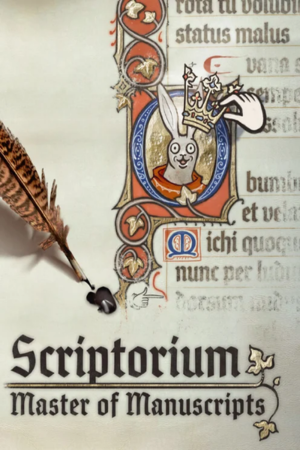 rota tu volubi
status malus
vana s
sempe
et vela
Michi quoqu
nunc per ludu
dorsum nudu
Scriptorium
Master of Manuscripts